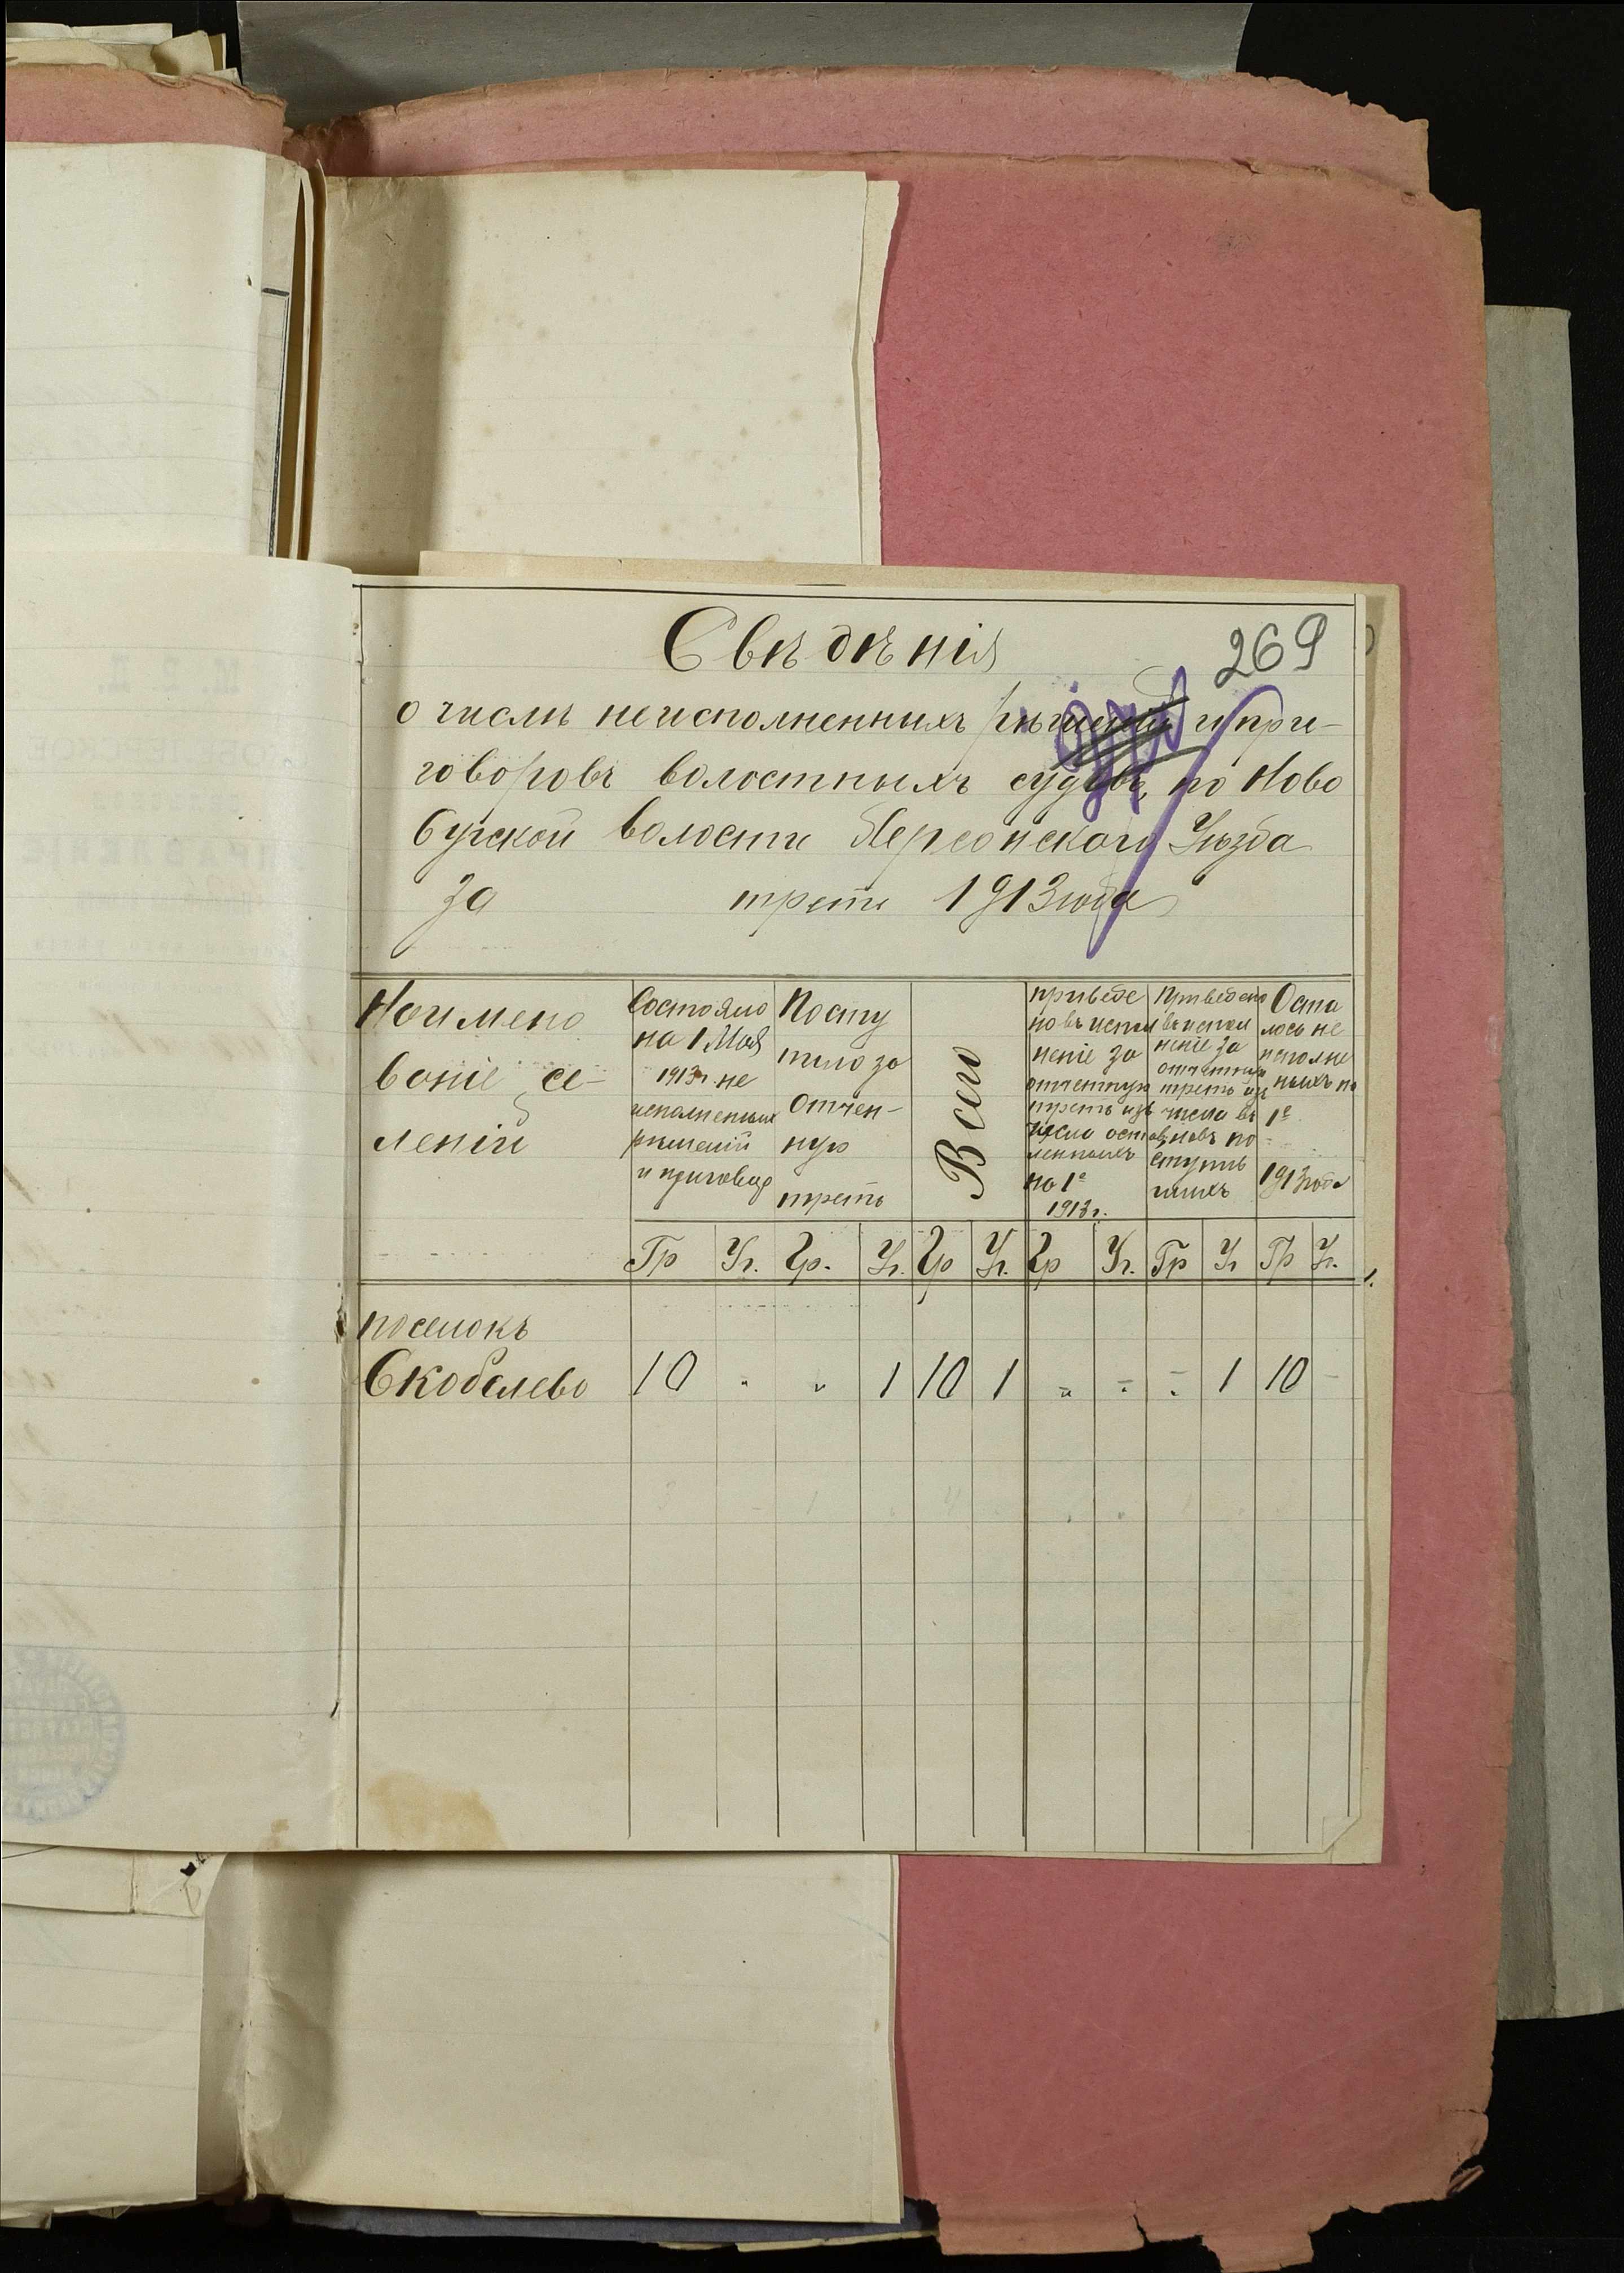 269
Свѣдѣнія
о числѣ неисполненныхъ рѣшеній и при-
говоровъ волостныхъ судовъ, по Ново
Бугской волости Херсонскаго Уѣзда
за трети 1913 года
Наимено
ваніе се-
леній
Состояло
на 1 Мая
1913 г. не
исполненныхъ
рѣшеній
и приговор
Посту
пило за
отчет-
ную
треть
Всего
приведе
но въ испол
неніе за
отчетную
треть изъ
числа остав
ленныхъ
на 1е
1913 г.
Приведено
въ испол
неніе за
отчетную
треть из
числа въ
новь по
ступив
шихъ
Оста
лось не
исполне
ныхъ на
1е
1913 года
Гр Уг. Гр. Уг. Гр Уг. Гр Уг. Гр Уг Гр Уг.
поселокъ
Скобелево 10 " " 1 10 1 " " " 1 10 -